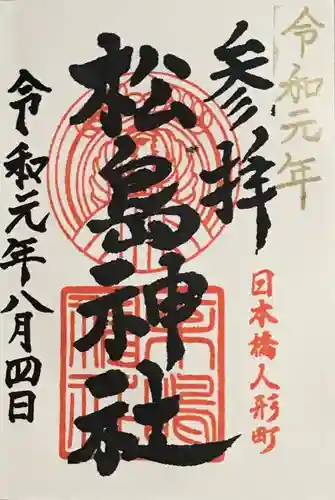 令和元年
参拝
日本橋人形町
松島神社
令和元年八月四日